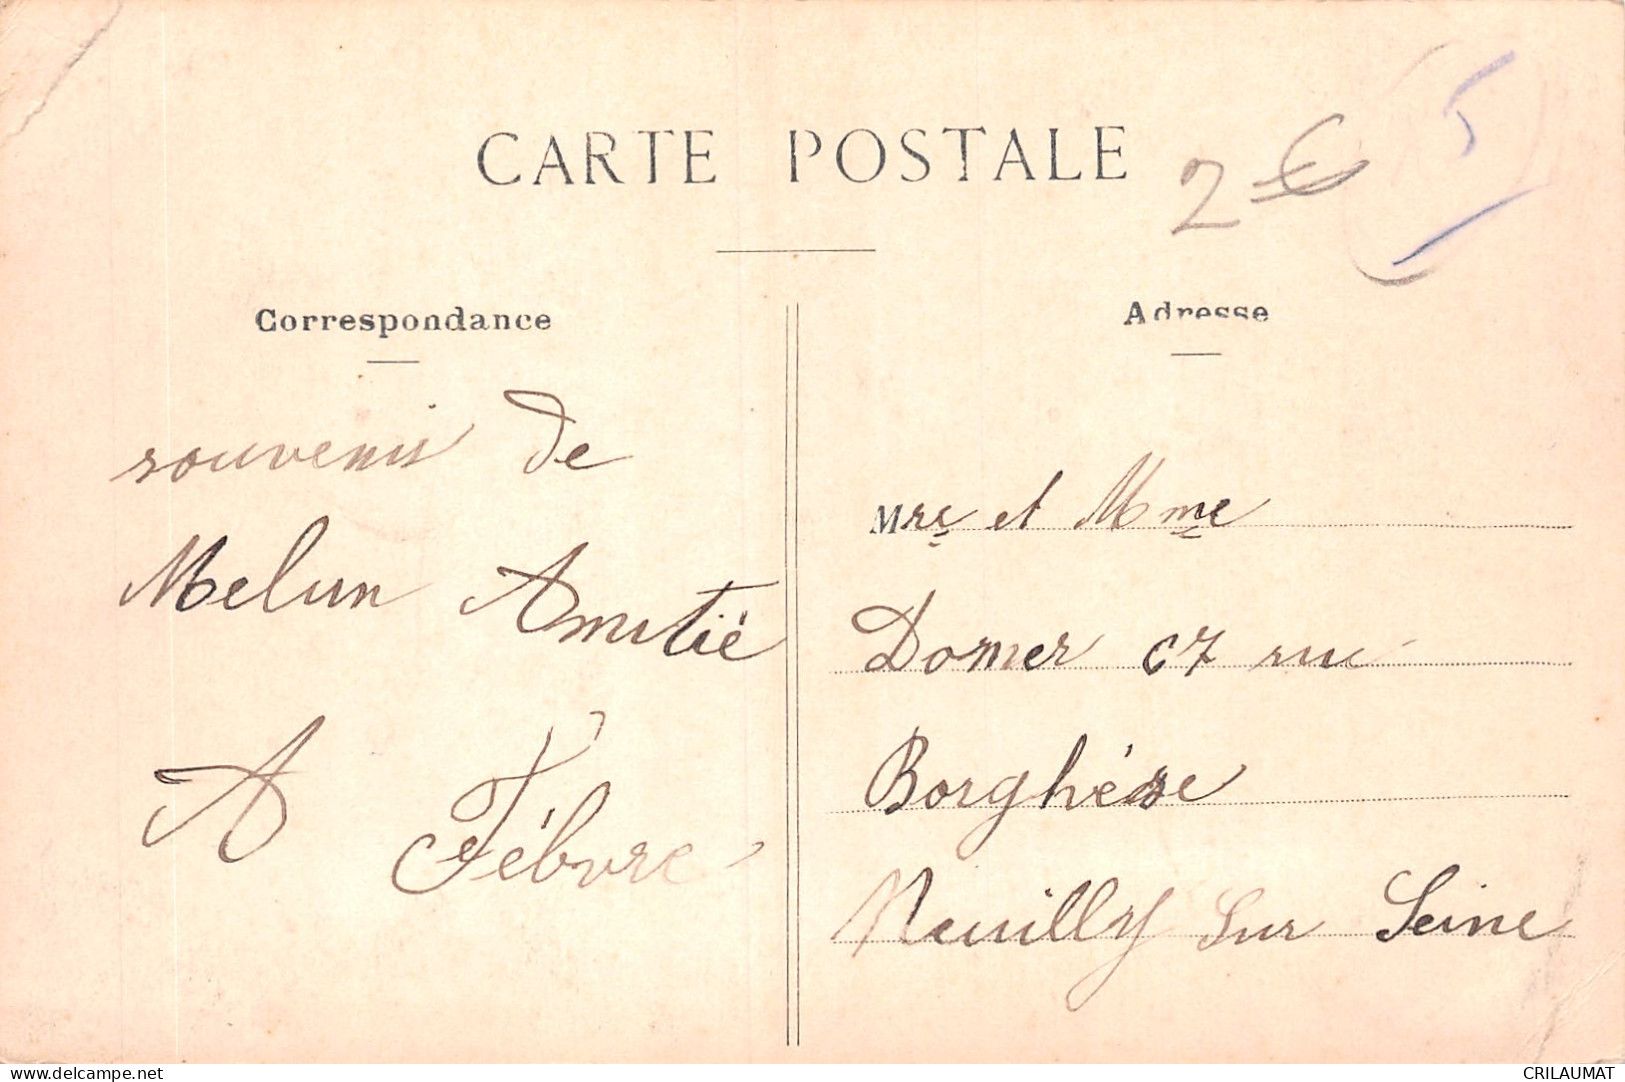 CARTE POSTALE
2 €
5
Correspondance
Adresse
souvenir de
Melun Amitié
A Febvre
Mre et Mme
Domer 67 rue
Borghèse
Neuilly sur Seine
delcampe.net
CRILAUMAT